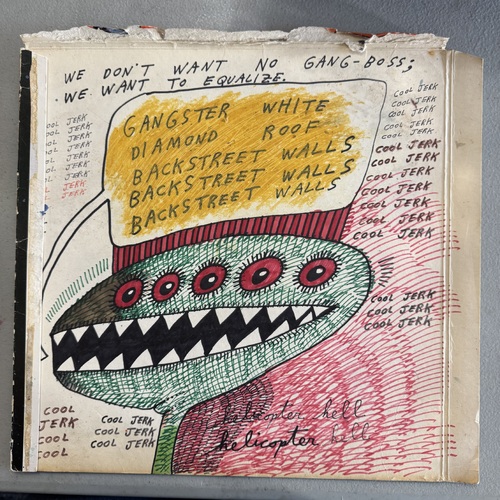 WE DON'T WANT NO GANG-BOSS;
WE WANT TO EQUALIZE.
GANGSTER WHITE
DIAMOND ROOF
BACKSTREET WALLS
BACKSTREET WALLS
BACKSTREET WALLS
OOL JERK
OOL JERK
OOL JERK
OOL JERK
OOL JERK
OOL JERK
JERK
JERK
COOL JERK
COOL JERK
COOL JERK
COOL JERK
COOL JERK
COOL JERK
COOL JERK
COOL JERK
COOL JERK
COOL JERK
COOL JERK
COOL JERK
COOL JERK
COOL JERK
COOL
JERK
COOL
COOL
COOL JERK
COOL JERK
COOL JERK
helicopter hell
helicopter hell